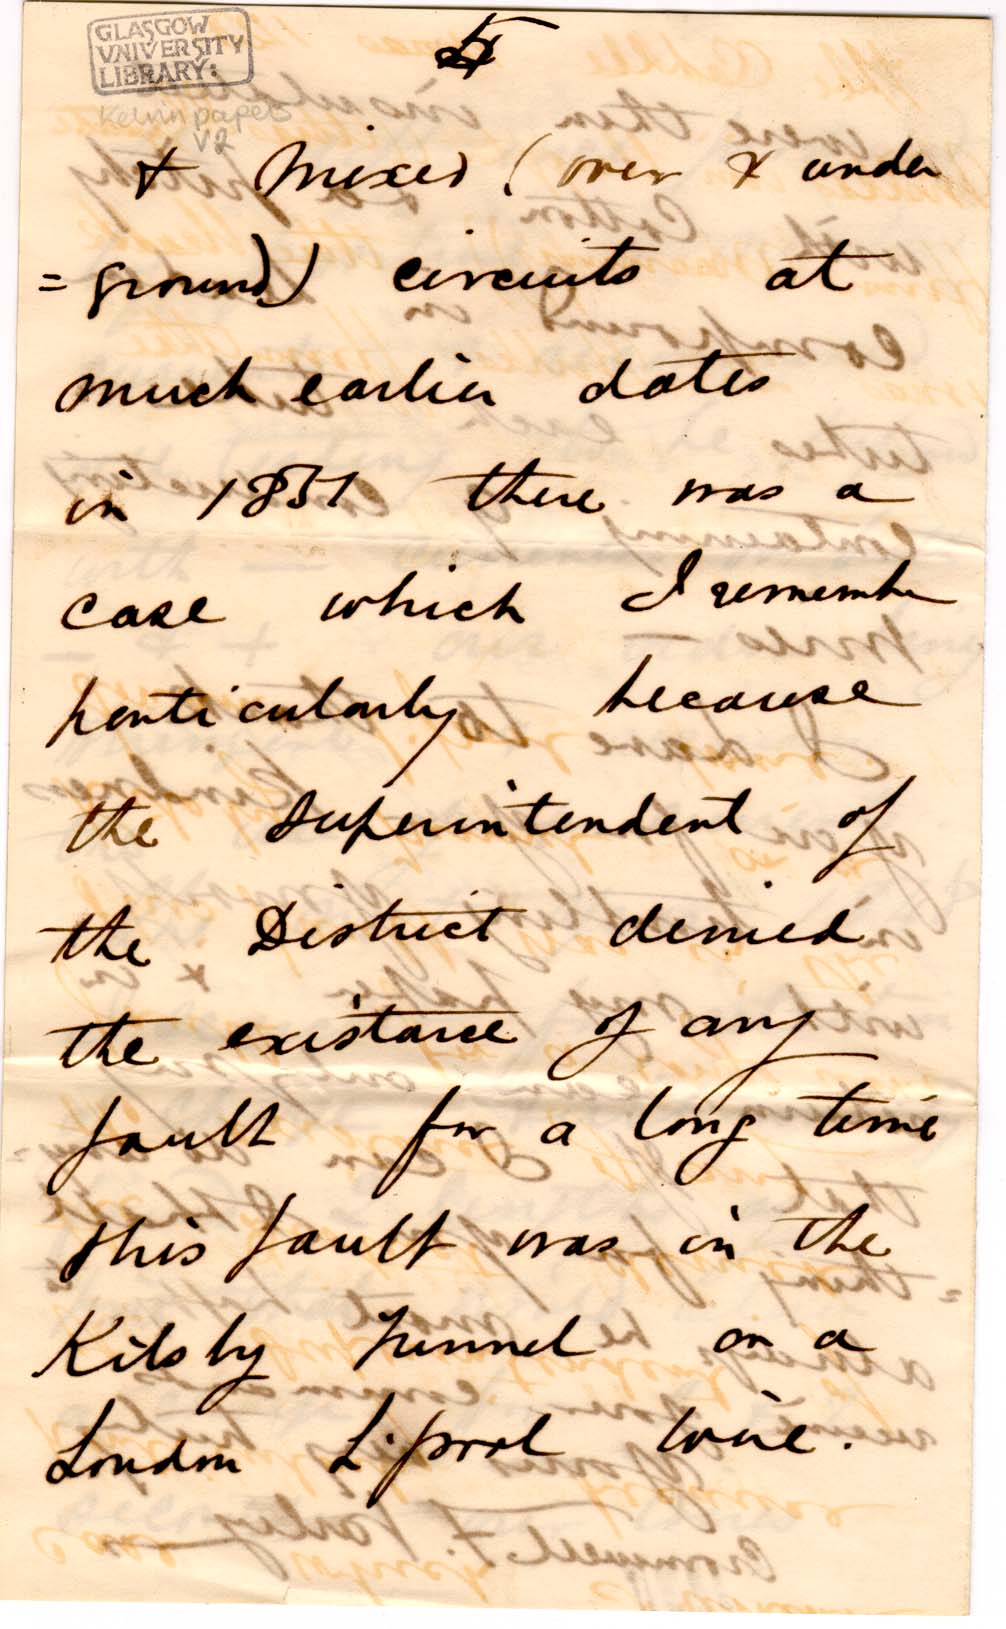 GLASGOW
UNIVERSITY
LIBRARY:
Kelvin papers
V2
5
& Mixed (over & under
=ground) circuits at
much earlier dates
in 1851 there was a
case which I remember
particularly because
the Superintendent of
the District denied
the existance of any
fault for a long time
this fault was in the
Kilsby Tunnel on a
London L'pool wire.